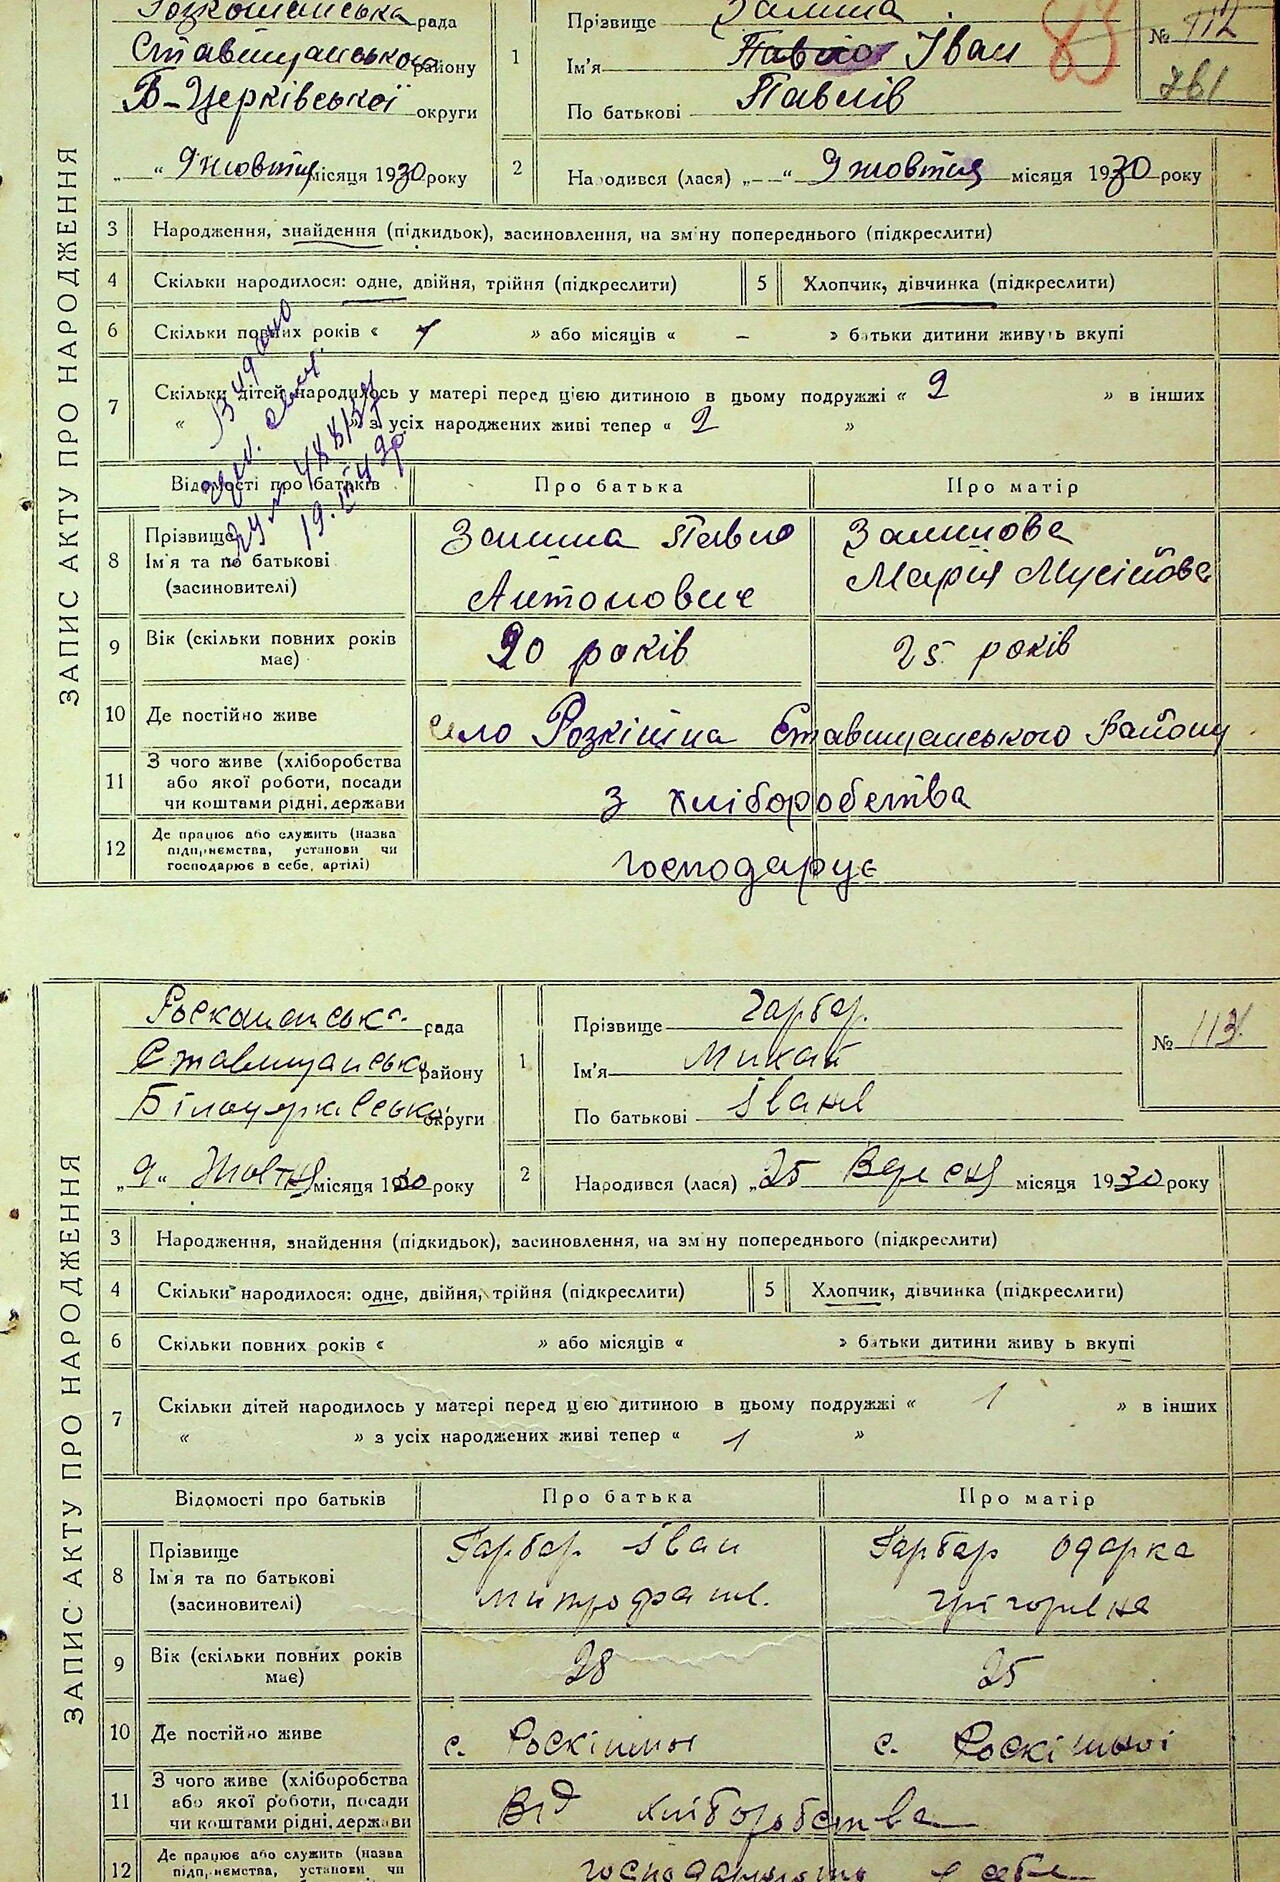 ЗАПИС АКТУ ПРО НАРОДЖЕННЯ
Розкошанська рада
Ставищанського району
Б-Церківської округи
„ “ 9 жовтня місяця 1930 року
1
Прізвище Залита
Ім'я Павло Іван
По батькові Павлів
83
№ 112
761
2
Народився (лася) „—“ 9 жовтня місяця 1930 року
3 Народження, знайдення (підкидьок), засиновлення, на зміну попереднього (підкреслити)
4 Скільки народилося: одне, двійня, трійня (підкреслити)
5 Хлопчик, дівчинка (підкреслити)
6 Скільки повних років « 7 » або місяців « – » батьки дитини живуть вкупі
7 Скільки дітей народилось у матері перед цією дитиною в цьому подружжі « 2 » в інших
« » з усіх народжених живі тепер « 2 »
Відомості про батьків Про батька Про матір
8 Прізвище
Ім'я та по батькові
(засиновителі)
Павло
Антонович
Марія Мусійова
9 Вік (скільки повних років має) 20 років 25 років
10 Де постійно живе село Розкішна Ставищанського Району
11 З чого живе (хліборобства
або якої роботи, посади
чи коштами рідні, держави
з хліборобства
12 Де працює або служить (назва
підприємства, установи чи
господарює в себе, артілі)
господарує
ЗАПИС АКТУ ПРО НАРОДЖЕННЯ
Роскошанськ. рада
Ставищанськ. району
Білоцерківськ. округи
„9“ Жовтня місяця 1930 року
1
Прізвище Гарбар
Ім'я Микола
По батькові Іванів
№ 113
2
Народився (лася) „25 Вересня місяця 1930 року
3 Народження, знайдення (підкидьок), засиновлення, на зміну попереднього (підкреслити)
4 Скільки народилося: одне, двійня, трійня (підкреслити)
5 Хлопчик, дівчинка (підкреслити)
6 Скільки повних років « » або місяців « » батьки дитини живу ь вкупі
7 Скільки дітей народилось у матері перед цією дитиною в цьому подружжі « 1 » в інших
« » з усіх народжених живі тепер « 1 »
Відомості про батьків Про батька Про матір
8 Прізвище
Ім'я та по батькові
(засиновителі)
Гарбар Іван
Митрофан.
Гарбар Одарка
Грігорівна
9 Вік (скільки повних років має) 28 25
10 Де постійно живе с. Роскішної с. Роскішної
11 З чого живе (хліборобства
або якої роботи, посади
чи коштами рідні, держави
Від хліборобства
12 Де працює або служить (назва
підприємства, установи чи
господарюють у себе